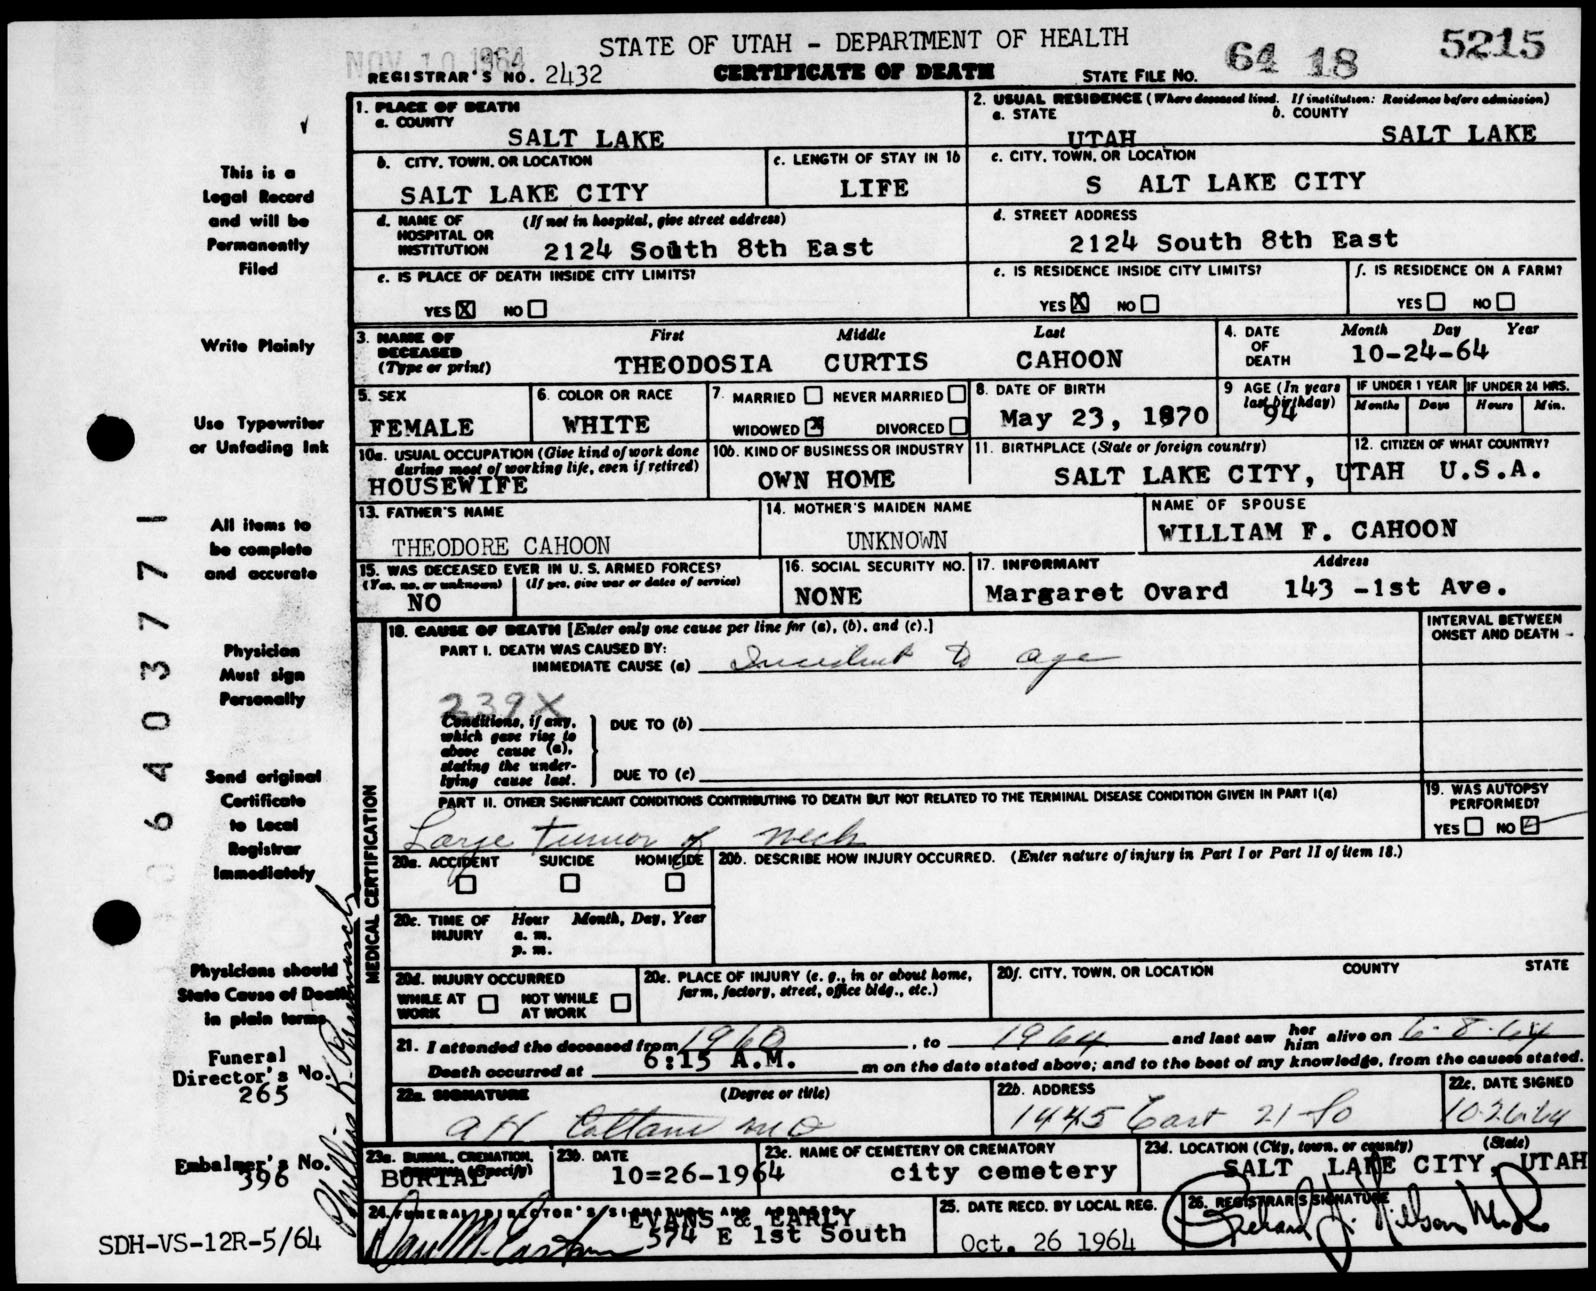 NOV 10 1964
STATE OF UTAH - DEPARTMENT OF HEALTH
64 18 5215
REGISTRAR'S NO. 2432 CERTIFICATE OF DEATH STATE FILE NO.
1. PLACE OF DEATH
a. COUNTY
SALT LAKE
2. USUAL RESIDENCE (Where deceased lived. If institution: Residence before admission)
a. STATE b. COUNTY
UTAH SALT LAKE
b. CITY, TOWN, OR LOCATION
SALT LAKE CITY
c. LENGTH OF STAY IN 1b
LIFE
c. CITY, TOWN, OR LOCATION
S ALT LAKE CITY
d. NAME OF HOSPITAL OR INSTITUTION (If not in hospital, give street address)
2124 South 8th East
d. STREET ADDRESS
2124 South 8th East
e. IS PLACE OF DEATH INSIDE CITY LIMITS?
YES X NO
e. IS RESIDENCE INSIDE CITY LIMITS?
YES X NO
f. IS RESIDENCE ON A FARM?
YES NO
3. NAME OF DECEASED (Type or print)
First Middle Last
THEODOSIA CURTIS CAHOON
4. DATE OF DEATH
Month Day Year
10-24-64
5. SEX
FEMALE
6. COLOR OR RACE
WHITE
7. MARRIED NEVER MARRIED
WIDOWED X DIVORCED
8. DATE OF BIRTH
May 23, 1870
9 AGE (In years last birthday)
94
IF UNDER 1 YEAR IF UNDER 24 HRS.
Months Days Hours Min.
10a. USUAL OCCUPATION (Give kind of work done during most of working life, even if retired)
HOUSEWIFE
10b. KIND OF BUSINESS OR INDUSTRY
OWN HOME
11. BIRTHPLACE (State or foreign country)
SALT LAKE CITY, UTAH
12. CITIZEN OF WHAT COUNTRY?
U.S.A.
13. FATHER'S NAME
THEODORE CAHOON
14. MOTHER'S MAIDEN NAME
UNKNOWN
NAME OF SPOUSE
WILLIAM F. CAHOON
15. WAS DECEASED EVER IN U. S. ARMED FORCES?
(Yes, no, or unknown) (If yes, give war or dates of service)
NO
16. SOCIAL SECURITY NO.
NONE
17. INFORMANT Address
Margaret Ovard 143 -1st Ave.
MEDICAL CERTIFICATION
18. CAUSE OF DEATH [Enter only one cause per line for (a), (b), and (c).]
INTERVAL BETWEEN ONSET AND DEATH
PART I. DEATH WAS CAUSED BY:
IMMEDIATE CAUSE (a) Incident to age
239X
Conditions, if any, which gave rise to above cause (a), stating the underlying cause last.
DUE TO (b)
DUE TO (c)
PART II. OTHER SIGNIFICANT CONDITIONS CONTRIBUTING TO DEATH BUT NOT RELATED TO THE TERMINAL DISEASE CONDITION GIVEN IN PART I(a)
Large tumor of neck
19. WAS AUTOPSY PERFORMED?
YES NO
20a. ACCIDENT SUICIDE HOMICIDE
20b. DESCRIBE HOW INJURY OCCURRED. (Enter nature of injury in Part I or Part II of item 18.)
20c. TIME OF INJURY Hour Month, Day, Year
a. m.
p. m.
20d. INJURY OCCURRED
WHILE AT WORK NOT WHILE AT WORK
20e. PLACE OF INJURY (e. g., in or about home, farm, factory, street, office bldg., etc.)
20f. CITY, TOWN, OR LOCATION COUNTY STATE
21. I attended the deceased from 1960, to 1964 and last saw her him alive on 6-8-64
Death occurred at 6:15 A.M. m on the date stated above; and to the best of my knowledge, from the causes stated.
22a. SIGNATURE (Degree or title)
22b. ADDRESS
1445 East 21 So
22c. DATE SIGNED
10-26-64
23a. BURIAL, CREMATION, REMOVAL (Specify)
BURIAL
23b. DATE
10=26-1964
23c. NAME OF CEMETERY OR CREMATORY
city cemetery
23d. LOCATION (City, town, or county) (State)
SALT LAKE CITY, UTAH
24. FUNERAL DIRECTOR'S SIGNATURE AND ADDRESS
EVANS & EARLY
574 E 1st South
25. DATE RECD. BY LOCAL REG.
Oct. 26 1964
26. REGISTRAR'S SIGNATURE
This is a
Legal Record
and will be
Permanently
Filed
Write Plainly
Use Typewriter
or Unfading Ink
All items to
be complete
and accurate
Physician
Must sign
Personally
Send original
Certificate
to Local
Registrar
Immediately
Physicians should
State Cause of Death
in plain terms
Funeral
Director's No.
265
Embalmer's No.
396
SDH-VS-12R-5/64